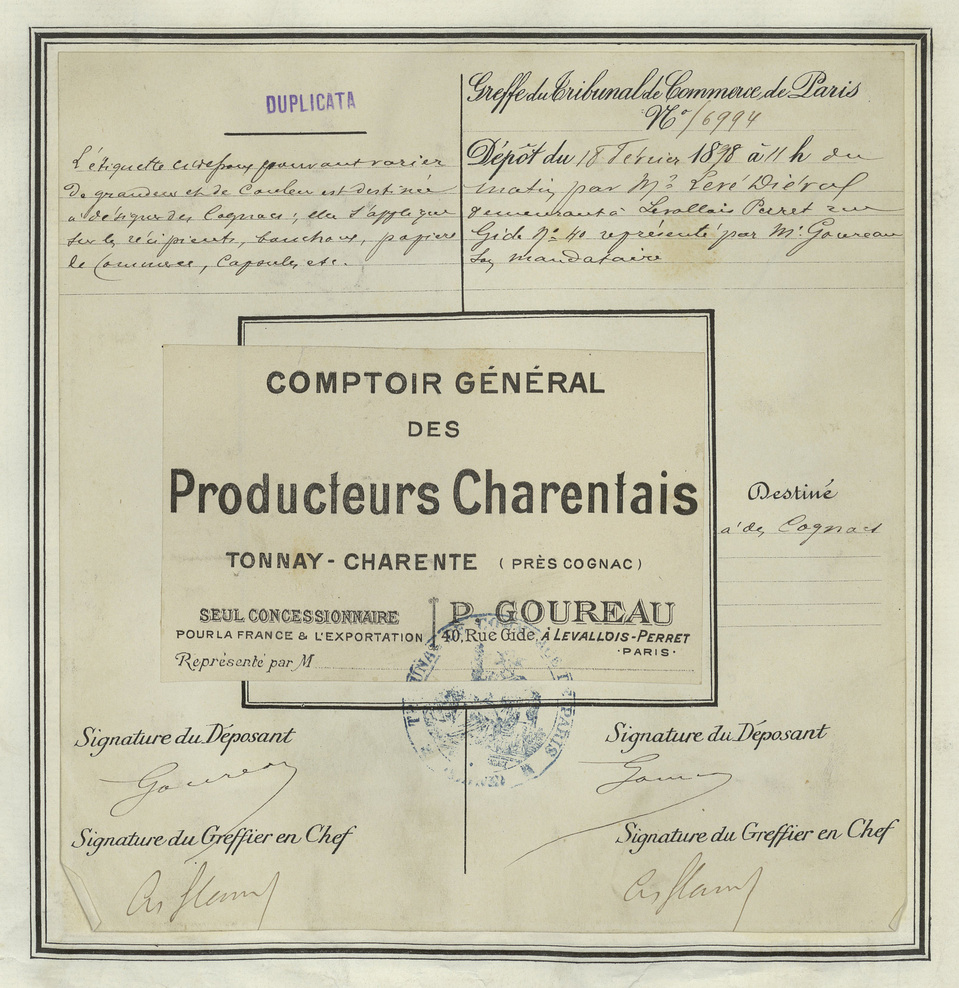 DUPLICATA
L'étiquette ci dessous pouvant varier
de grandeur et de couleur est destinée
à désigner des Cognacs ; elle s'applique
sur les récipients, bouchons, papiers
de Commerce, Capsules etc.
Greffe du Tribunal de Commerce de Paris
N° 16994
Dépôt du 18 Février 1898 à 11 h du
matin par Mr Levé Diéval
demeurant à Levallois Perret rue
Gide No 40 représenté par Mr Goureau
son mandataire
COMPTOIR GÉNÉRAL
DES
Producteurs Charentais
TONNAY-CHARENTE (PRÈS COGNAC)
SEUL CONCESSIONNAIRE
POUR LA FRANCE & L'EXPORTATION
P. GOUREAU
40, Rue Gide, À LEVALLOIS-PERRET
·PARIS·
Représenté par M
Destiné
à des Cognacs
TRIBUNAL DE COMMERCE DE PARIS
Signature du Déposant
Goureau
Signature du Greffier en Chef
Signature du Déposant
Signature du Greffier en Chef